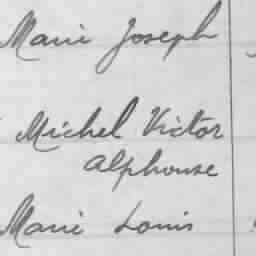 Marie Joseph
Michel Victor
Alphonse
Marie Louis